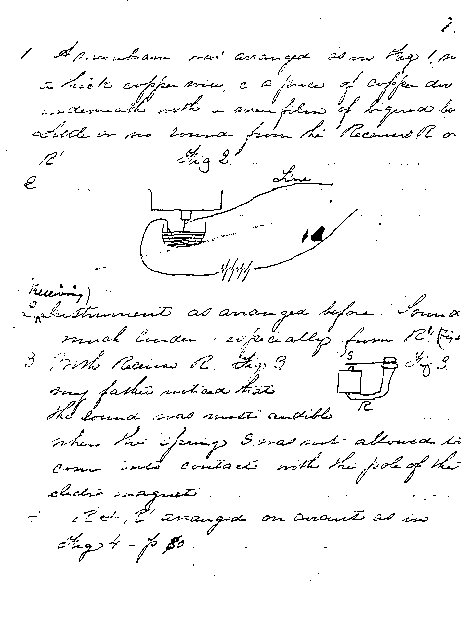 7.
1 Apparatus was arranged as in Fig 1,
a thick copper wire, c a piece of copper
underneath with a film of liquid
in no sound from the Receivers R or
R' Fig 2.
2
Line
(Receiving)
Instrument as arranged before. Sound
much louder especially from R' (Fig
3 With Receiver R. Fig. 3
S Fig 3.
my father noticed that
R
the sound was most audible
when the spring S was not allowed to
come into contact with the pole of the
electro magnet.
R & R' arranged on circuit as in
Fig 4 - p 80.